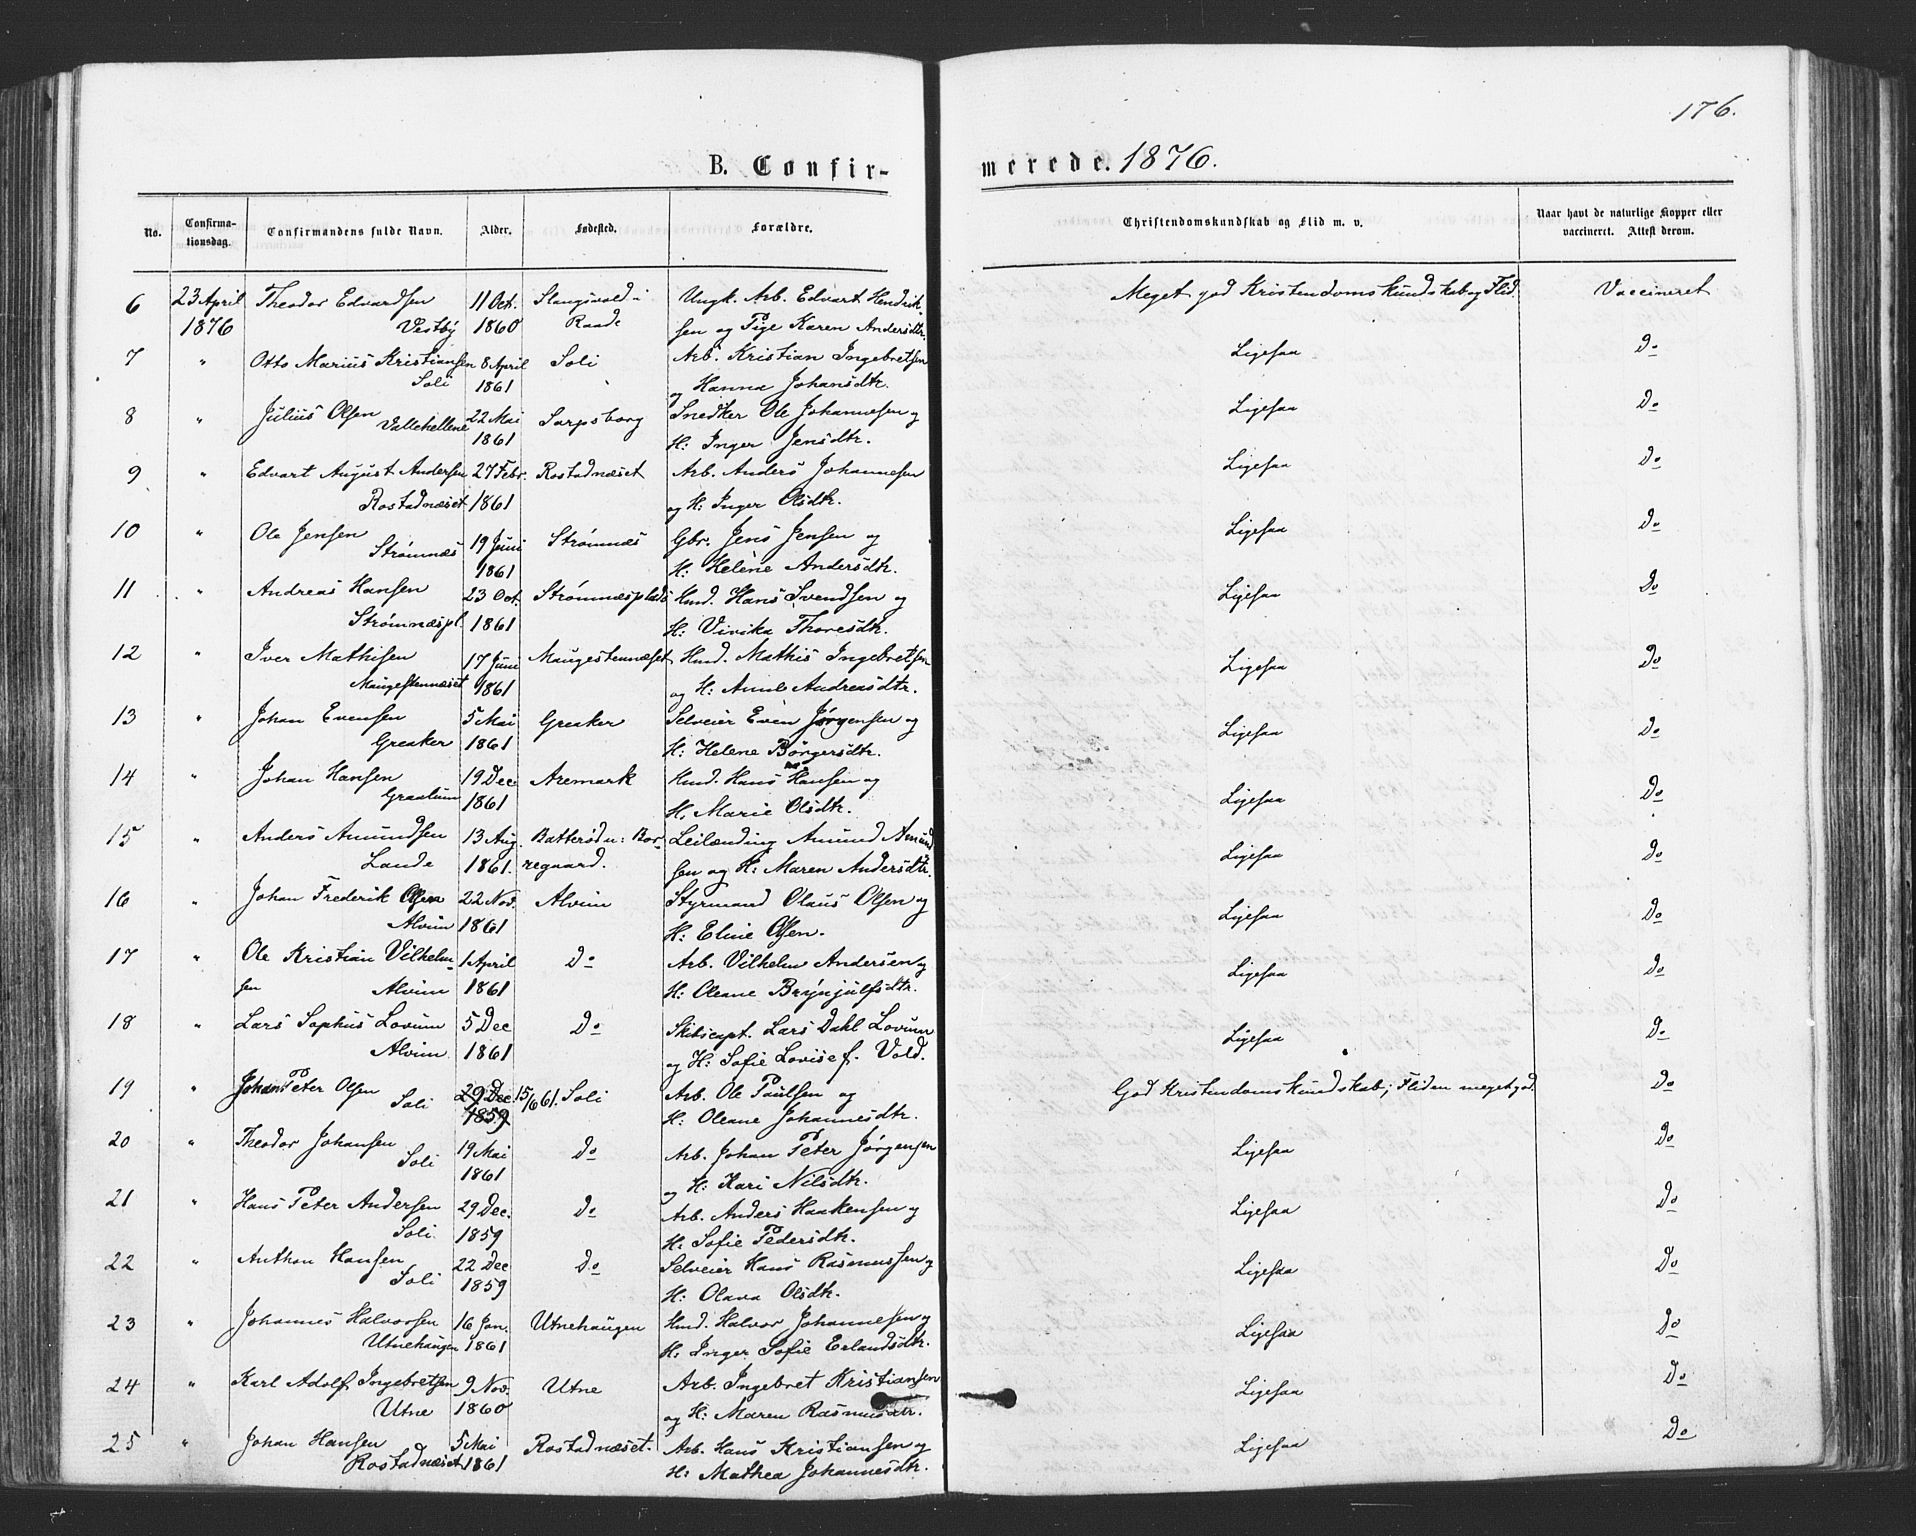 176.
B. Confirmerede. 1876.
No. Confirmationsdag. Confirmandens fulde Navn. Alder. Fødested. Forældre. Christendomskundskab og Flid m. v. Naar havt de naturlige Kopper eller vaccineret. Attest derom.
6 23 April Theodor Edvardsen 11 Oct. Slangsvold i Ungk. Arb. Edvart Hendrik- Meget god Kristendomskundskab og Flid. Vaccineret
1876 Vestby 1860 Raade sen og Pige Karen Andersdtr.
7 " Otto Marius Kristiansen 8 April Soli Arb. Kristian Ingebretsen Ligesaa Do
Soli 1861 og Hanna Johansdtr.
8 " Julius Olsen 22 Mai Sarpsborg Snedker Ole Johannesen og Ligesaa Do
Vallehellene 1861 H: Inger Jensdtr.
9 " Edvart August Andersen 27 Febr. Rostadnæset Arb. Anders Johannesen Ligesaa Do
Rostadnæset 1861 og H: Inger Olsdtr.
10 " Ole Jensen 19 Juni Strømnæs Gbr. Jens Jensen og Ligesaa Do
Strømnæs 1861 H: Helene Andersdtr.
11 " Andreas Hansen 23 Oct. Strømnæsplads Hmd. Hans Svendsen og Ligesaa Do
Strømnæspl. 1861 H: Vivika Thoresdtr.
12 " Iver Mathisen 17 Juni Maugestennæset Hmd. Mathis Ingebretsen Ligesaa Do
Maugestennæset 1861 og H: Anne Andreasdtr.
13 " Johan Evensen 5 Mai Greaker Selveier Even Jørgensen og Ligesaa Do
Greaker 1861 H: Helene Børgersdtr.
14 " Johan Hansen 19 Dec Aremark Hmd. Hans Hansen og Ligesaa Do
Graalum 1861 H, Marie Olsdtr.
15 " Anders Amundsen 13 Aug. Batterød u: Bor- Leilænding Amund Amund Ligesaa Do
Lande 1861. regaard. sen og H: Maren Andersdtr.
16 " Johan Frederik Olsen 22 Nov. Alvim Styrmand Olaus Olsen og Ligesaa Do
Alvim 1861 H: Eline Olsen.
17 " Ole Kristian Vilhelm- 1 April Do Arb. Vilhelm Andersen og Ligesaa Do
sen Alvim 1861 H: Oleane Brynjulfsdtr.
18 " Lars Sophus Lovum 5 Dec Do Skibscapt. Lars Dahl Lovum Ligesaa Do
Alvim 1861 og H: Sofie Lovise f. Vold.
19 " Johan Peter Olsen 29 Dec. 15/6 61. Soli Arb. Ole Paulsen og God Kristendomskundskab; Fliden meget god. Do
Soli 1859 H: Oleane Johannesdtr.
20 " Theodor Johansen 19 Mai Do Arb. Johan Peter Jørgensen Ligesaa Do
Soli 1861 og H: Kari Nilsdtr.
21 " Hans Peter Andersen 29 Dec. Do Arb. Anders Haakensen og Ligesaa Do
Soli. 1859 H: Sofie Pedersdtr.
22 " Anthon Hansen 22 Dec Do Selveier Hans Rasmussen og Ligesaa Do
Soli 1859 H: Olava Olsdtr.
23 " Johannes Halvorsen 16 Jan. Utnehaugen Hmd. Halvor Johannesen og Ligesaa Do
Utnehaugen 1861 H: Inger Sofie Erlandsdtr.
24 " Karl Adolf Ingebretsen 9 Nov. Utne Arb. Ingebret Kristiansen Ligesaa Do
Utne 1860 og H: Maren Rasmusdtr.
25 " Johan Hansen 5 Mai Rostadnæset. Arb. Hans Kristiansen og Ligesaa Do
Rostadnæset 1861 H: Mathea Johannesdtr.